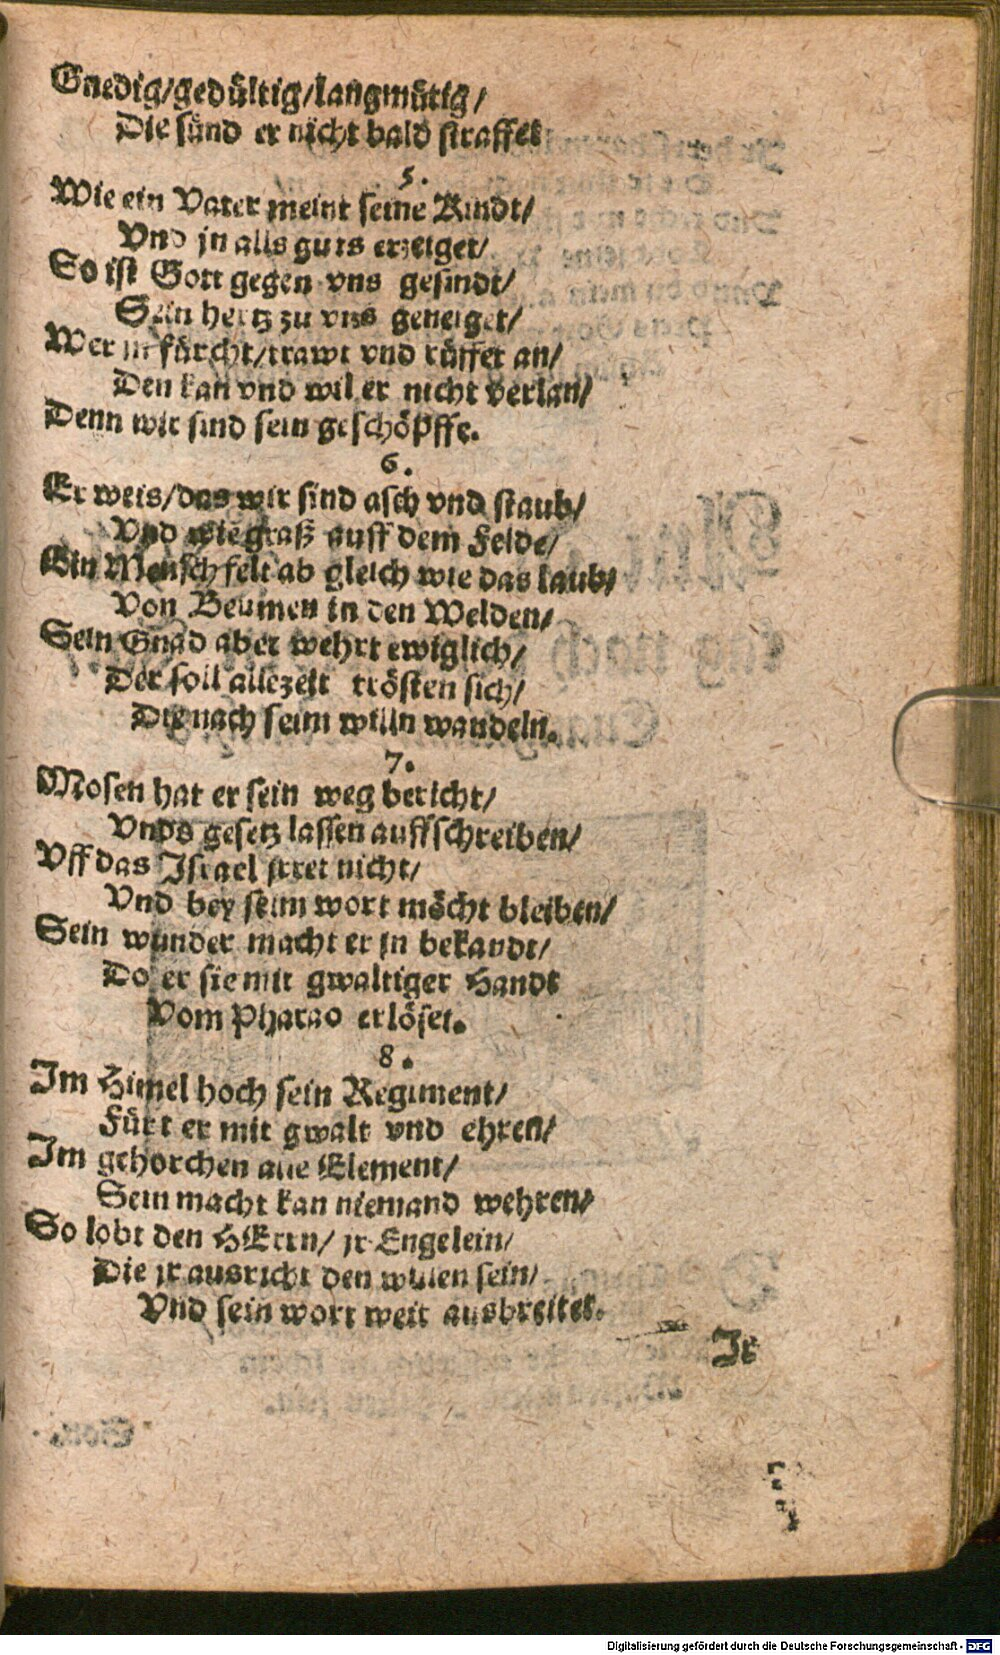 Gnedig/gedültig/langmütig/
Die sünd er nicht bald straffet
5.
Wie ein Vater meint seine Kindt/
Vnd jn alls guts erzeiget/
So ist Gott gegen vns gesindt/
Sein hertz zu vns geneiget/
Wer jn fürcht/trawt vnd rüffet an/
Den kan vnd wil er nicht verlan/
Denn wir sind sein geschöpffe.
6.
Er weis/das wir sind asch vnd staub/
Vnd wie graß auff dem Felde/
Ein Mensch felt ab gleich wie das laub/
Von Beumen in den Welden/
Sein Gnad aber wehrt ewiglich/
Der soll allezeit trösten sich/
Die nach seim willn wandeln.
7.
Mosen hat er sein weg bericht/
Vnds gesetz lassen auffschreiben/
Uff das Israel jrret nicht/
Vnd bey seim wort möcht bleiben/
Sein wunder macht er jn bekandt/
Do er sie mit gwaltiger Handt
Vom Pharao erlöset.
8.
Im Himel hoch sein Regiment/
Fürt er mit gwalt vnd ehren/
Im gehorchen alle Element/
Sein macht kan niemand wehren/
So lobt den HErrn/ jr Engelein/
Die jr ausricht den willen sein/
Vnd sein wort weit ausbreitet.
Jr
Digitalisierung gefördert durch die Deutsche Forschungsgemeinschaft - DFG